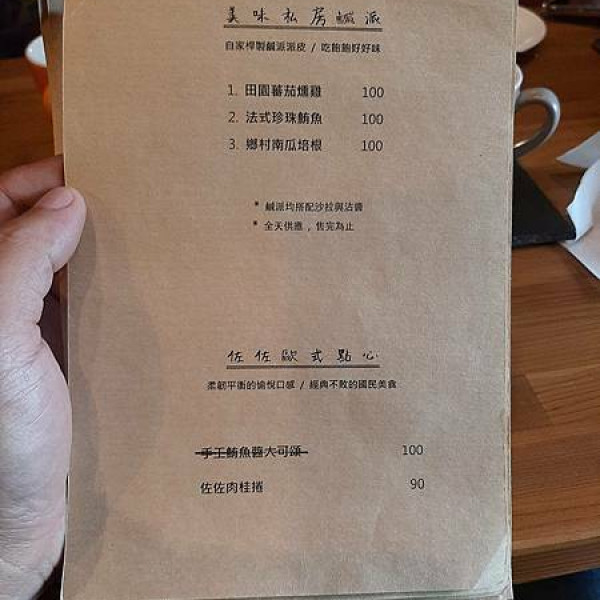 美味私房鹹派
自家桿製鹹派派皮 / 吃飽飽好好味
1. 田園蕃茄燻雞 100
2. 法式珍珠鮪魚 100
3. 鄉村南瓜培根 100
* 鹹派均搭配沙拉與沾醬
* 全天供應，售完為止
佐佐歐式點心
柔韌平衡的愉悅口感 / 經典不敗的國民美食
手工鮪魚醬大可頌 100
佐佐肉桂捲 90